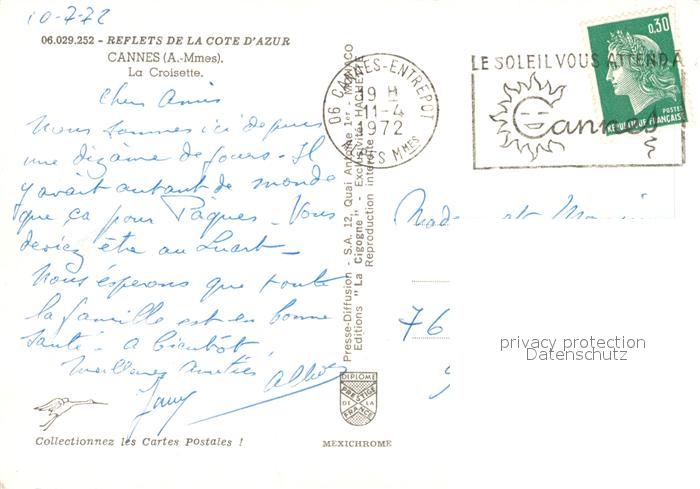 10-7-72
06.029.252 - REFLETS DE LA COTE D'AZUR
CANNES (A.-Mmes).
La Croisette.
Chers Amis
Nous sommes ici depuis
une dizaine de jours. Il
y avait autant de monde
que ça pour Pâques. Vous
deviez être au
Nous espérons que toute
la famille est en bonne
santé. A bientôt,
Meilleures amitiés
Collectionnez les Cartes Postales !
Presse-Diffusion - S.A. 12, Quai Antoine 1er - MONACO
Editions "La Cigogne" - Exclusivité HACHETTE
Reproduction interdite
DIPLOME
PRESTIGE
DE LA
FRANCE
MEXICHROME
06 CANNES-ENTREPOT
19 H
11-4
1972
ALPES Mmes
LE SOLEIL VOUS ATTEND A
Cannes
0,30
POSTES
REPUBLIQUE FRANÇAISE
76
privacy protection
Datenschutz